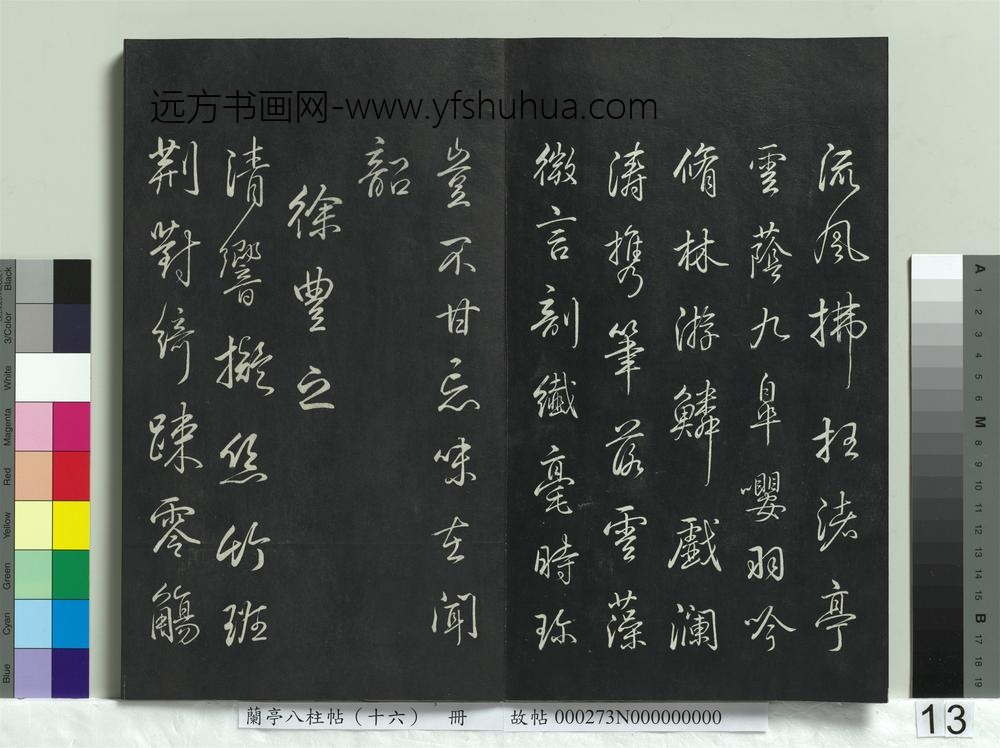 远方书画网-www.yfshuhua.com
流風拂枉渚亭
雲蔭九皐嚶羽吟
脩林游鱗戲瀾
濤攜筆落雲藻
微言剖纖毫時珍
豈不甘忘味在聞
韶
徐豐之
清響擬絲竹班
荆對綺疎零觴
蘭亭八柱帖（十六） 冊 故帖 000273N000000000
13
Black
3/Color
White
Magenta
Red
Yellow
Green
Cyan
Blue
A 1 2 3 4 5 6 M 8 9 10 11 12 13 14 15 B 17 18 19